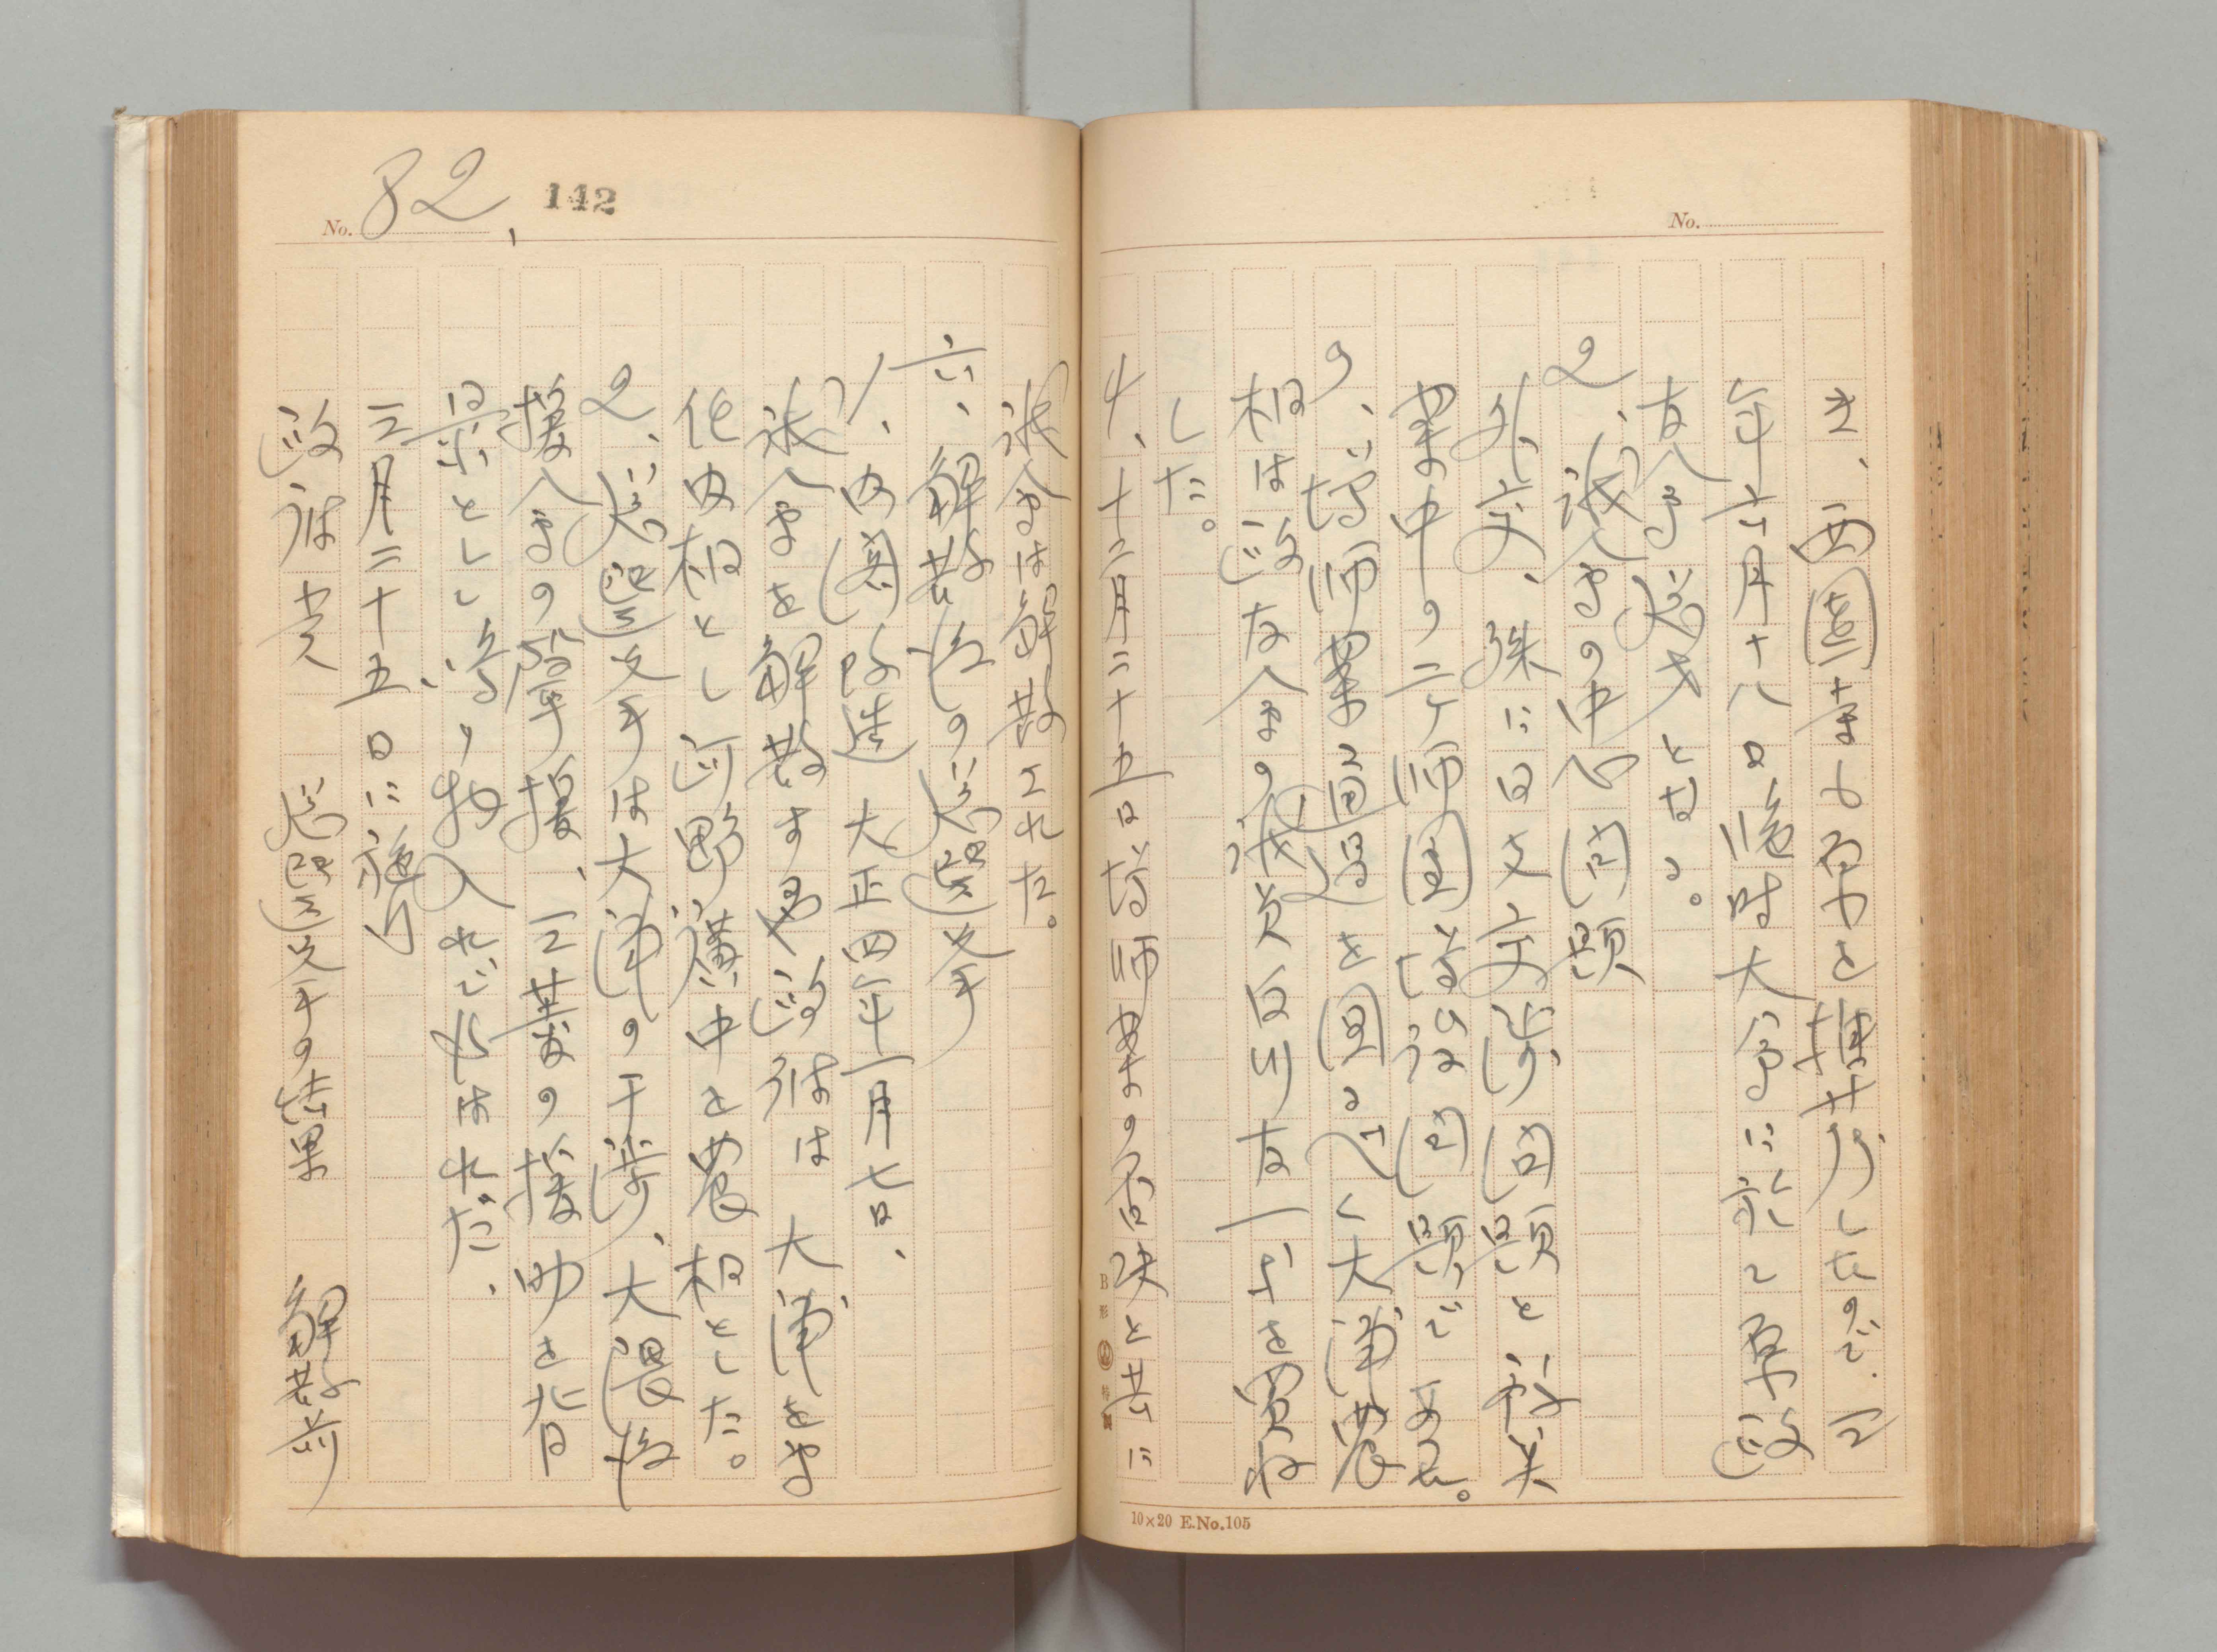 No.
き、西園寺も原を推薦したので、三
年六月十八日臨時大会に於て原政
友会総裁となる。
2、議会の中心問題
外交、殊に日支交渉問題と称美
案中の二ヶ師団増設問題である。
3、増師案通過を図るべく大浦農
相は政友会の議員白川友一等を買収
した。
4、十二月二十五日増師案の否決と共に
10×20 E.No.105
No. 82,
142
議会は解散された。
六、解散後の総選挙
1、内閣改造 大正四年一月七日、
議会を解散する政府は大浦を
内相とし河野廣中を農相とした。
2、総選挙は大浦の干渉、大隈後
援会の声援、三菱の援助を背
景として鳴り物入れで行はれた、
三月二十五日に施行
政府党 総選挙の結果 解散前